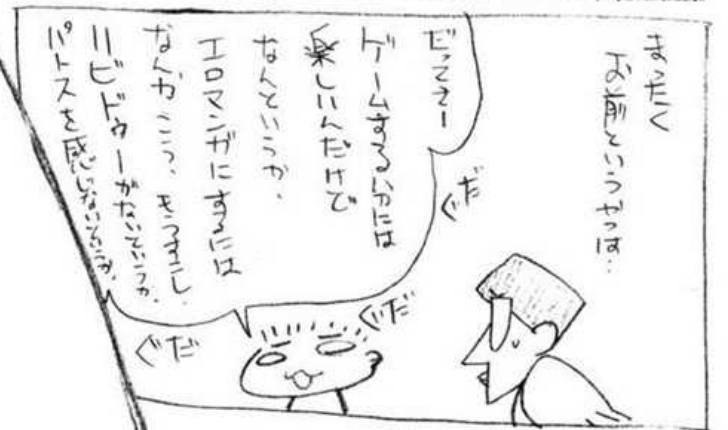 まったく
お前というやつは…
だってさー
ゲームする分には
楽しいんだけど
なんというか、
エロマンガにするには
なんかこう、もうすこし、
リビドゥーがないというか、
パトスを感じないというか、
ぐだ
ぐだ
ぐだ